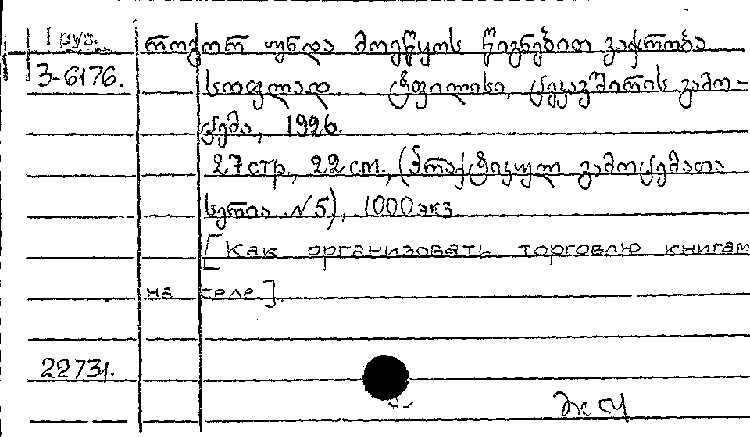 1 груз. როგორ უნდა მოეწყოს წიგნებით ვაჭრობა
3-6176. სოფლად. ტფილისი, ცეკავშირის გამო-
ცემა, 1926.
27 стр., 22 см., (პრაქტიკულ გამოცემათა
სერია №5), 1000 экз
[Как организовать торговлю книгам
на селе].
22731.